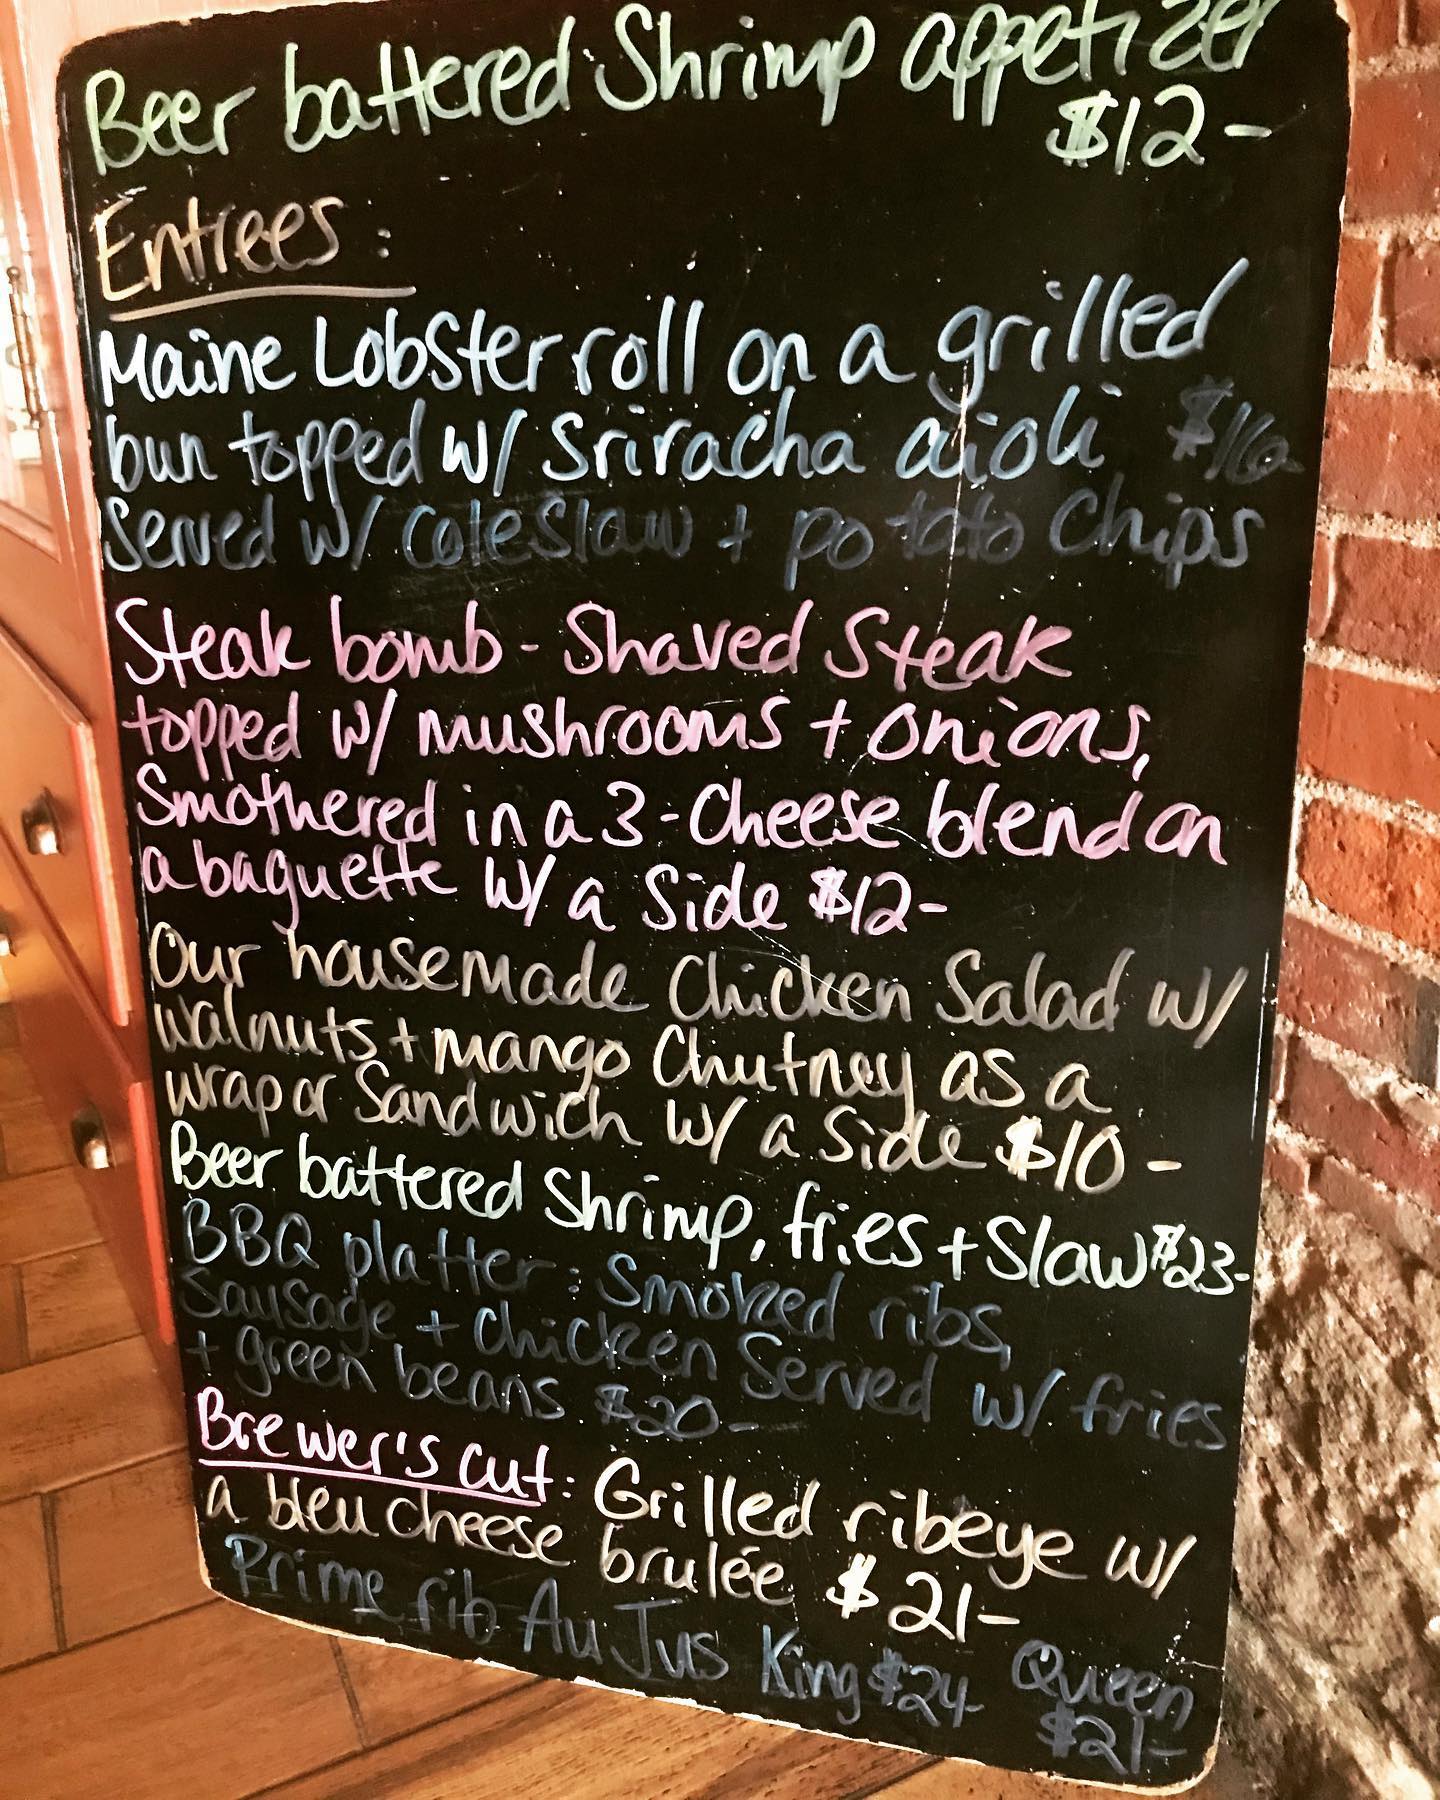 Beer battered Shrimp appetizer
$12-
Entrees:
Maine Lobster roll on a grilled
bun topped w/ Sriracha aioli $16-
Served w/ coleslaw + potato Chips
Steak bomb - Shaved Steak
topped w/ mushrooms + onions,
Smothered in a 3-Cheese blend on
a baguette w/ a Side $12-
Our housemade Chicken Salad w/
walnuts + mango Chutney as a
wrap or Sandwich w/ a Side $10-
Beer battered Shrimp, fries + Slaw $23-
BBQ platter: Smoked ribs,
Sausage + Chicken Served w/ fries
+ green beans $20-
Brewer's cut: Grilled ribeye w/
a bleu cheese brulée $21-
Prime rib Au Jus King $24- Queen
$21-